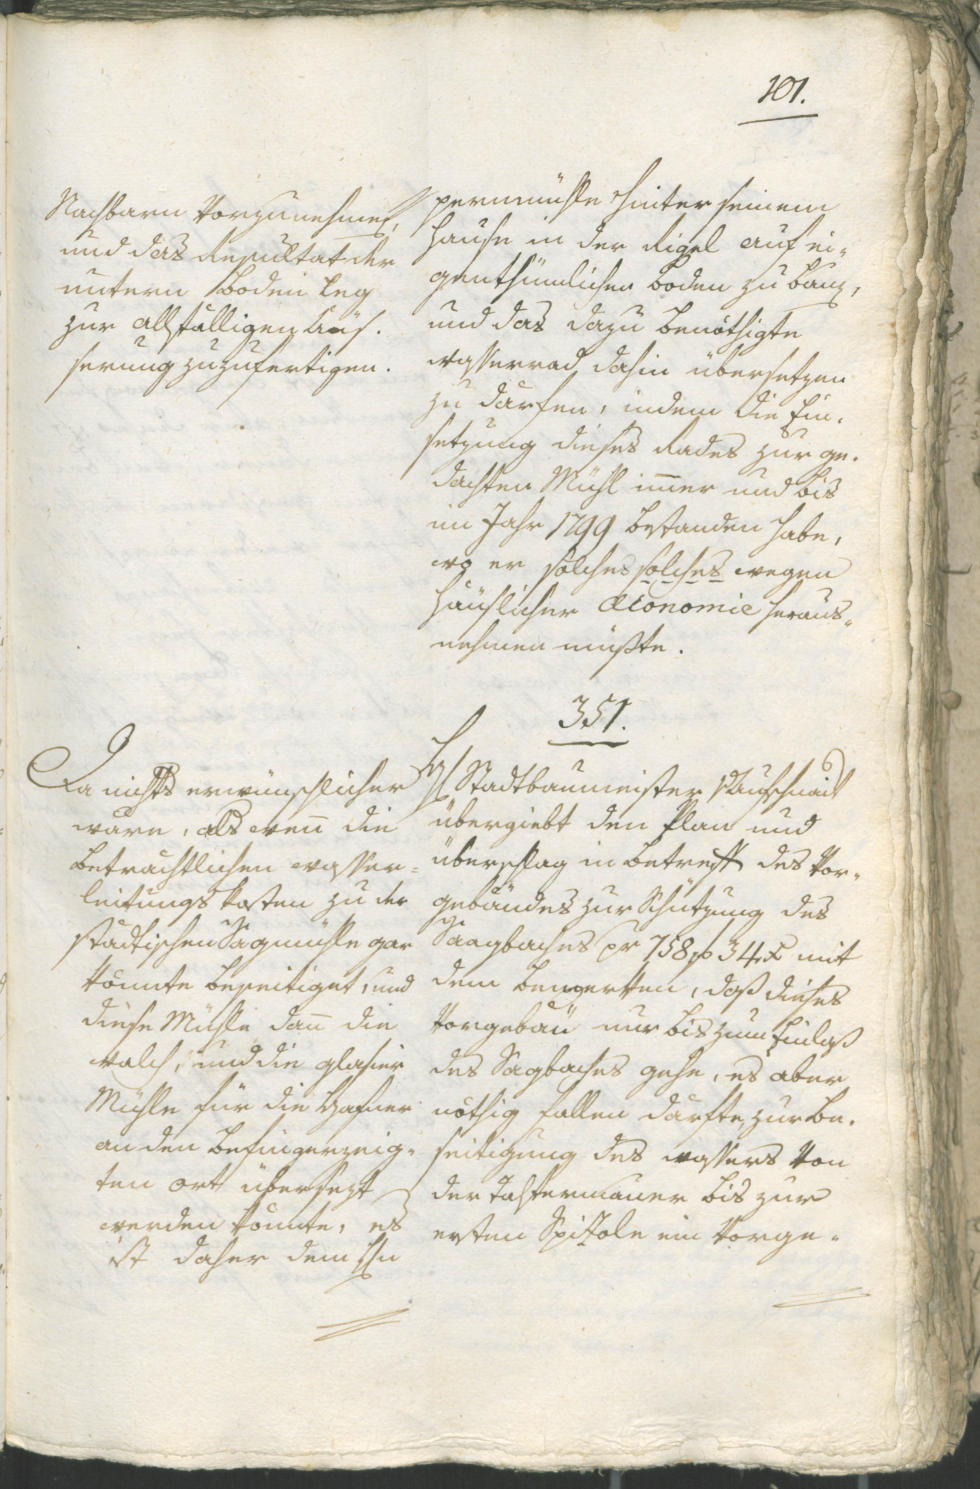 101.
Nachbarn vorzunehmen,
und das Resultat der
untern Boden leg
zur allfälligen Aus¬
serung zuzufertigen.
permühle hinter seinem
Hause in der Rigel auf ei¬
genthümlichen Boden zu bauen,
und das dazu benöthigte
wasserrad dahin übersetzen
zu därfen, indem die Ein¬
setzung dieses Rades zur ge¬
dachten Mühl immer und bis
im Jahr 1799 bestanden habe,
wo er solches solches wegen
häuslicher Œconomie heraus¬
nehmen müßte.
351.
Da nichts erwünschlicher
wäre, als wenn die
beträchtlichen wasser¬
leitungs kosten zu der
städtischen Sagmühle gar
könnte beseitiget, und
diese Mühle dann die
walch, und die glasier
Mühle für die Hafner
an den befingerzeig¬
ten ort übersezt
werden könnte, es
ist daher dem Hn
H Stadtbaumeister Aufschnait
übergiebt den Plan und
überschlag in betreff des Vor¬
gebäudes zur Schützung des
Saagbaches pr 758 f 34 x mit
dem bemerken, daß dieses
Vorgebäu nur bis zum Einlaß
des Sagbaches gehe, es aber
nöthig fallen därfte, zur be¬
seitigung des wassers von
der Talfermauer bis zur
ersten Spitole ein Vorge¬